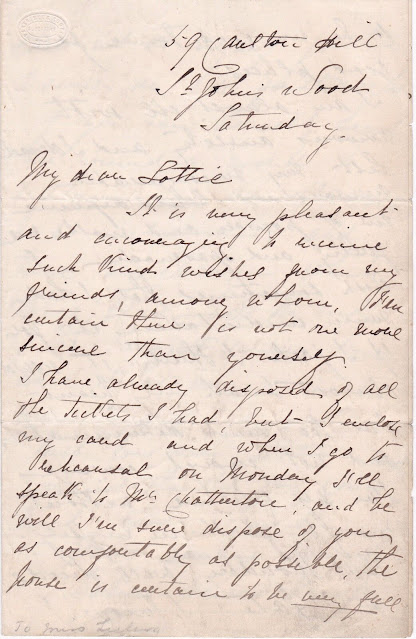 59 Carlton Hill
St Johns Wood
Saturday.
My dear Lottie
It is very pleasant
and encouraging to receive
such kind wishes from my
friends, among whom, I'm
certain there is not one more
sincere than yourself.
I have already disposed of all
the tickets I had, but I enclose
my card and when I go to
rehearsal on Monday I'll
speak to Mr Chatterton, and he
will I'm sure dispose of you
as comfortably as possible, the
house is certain to be very full
To Miss